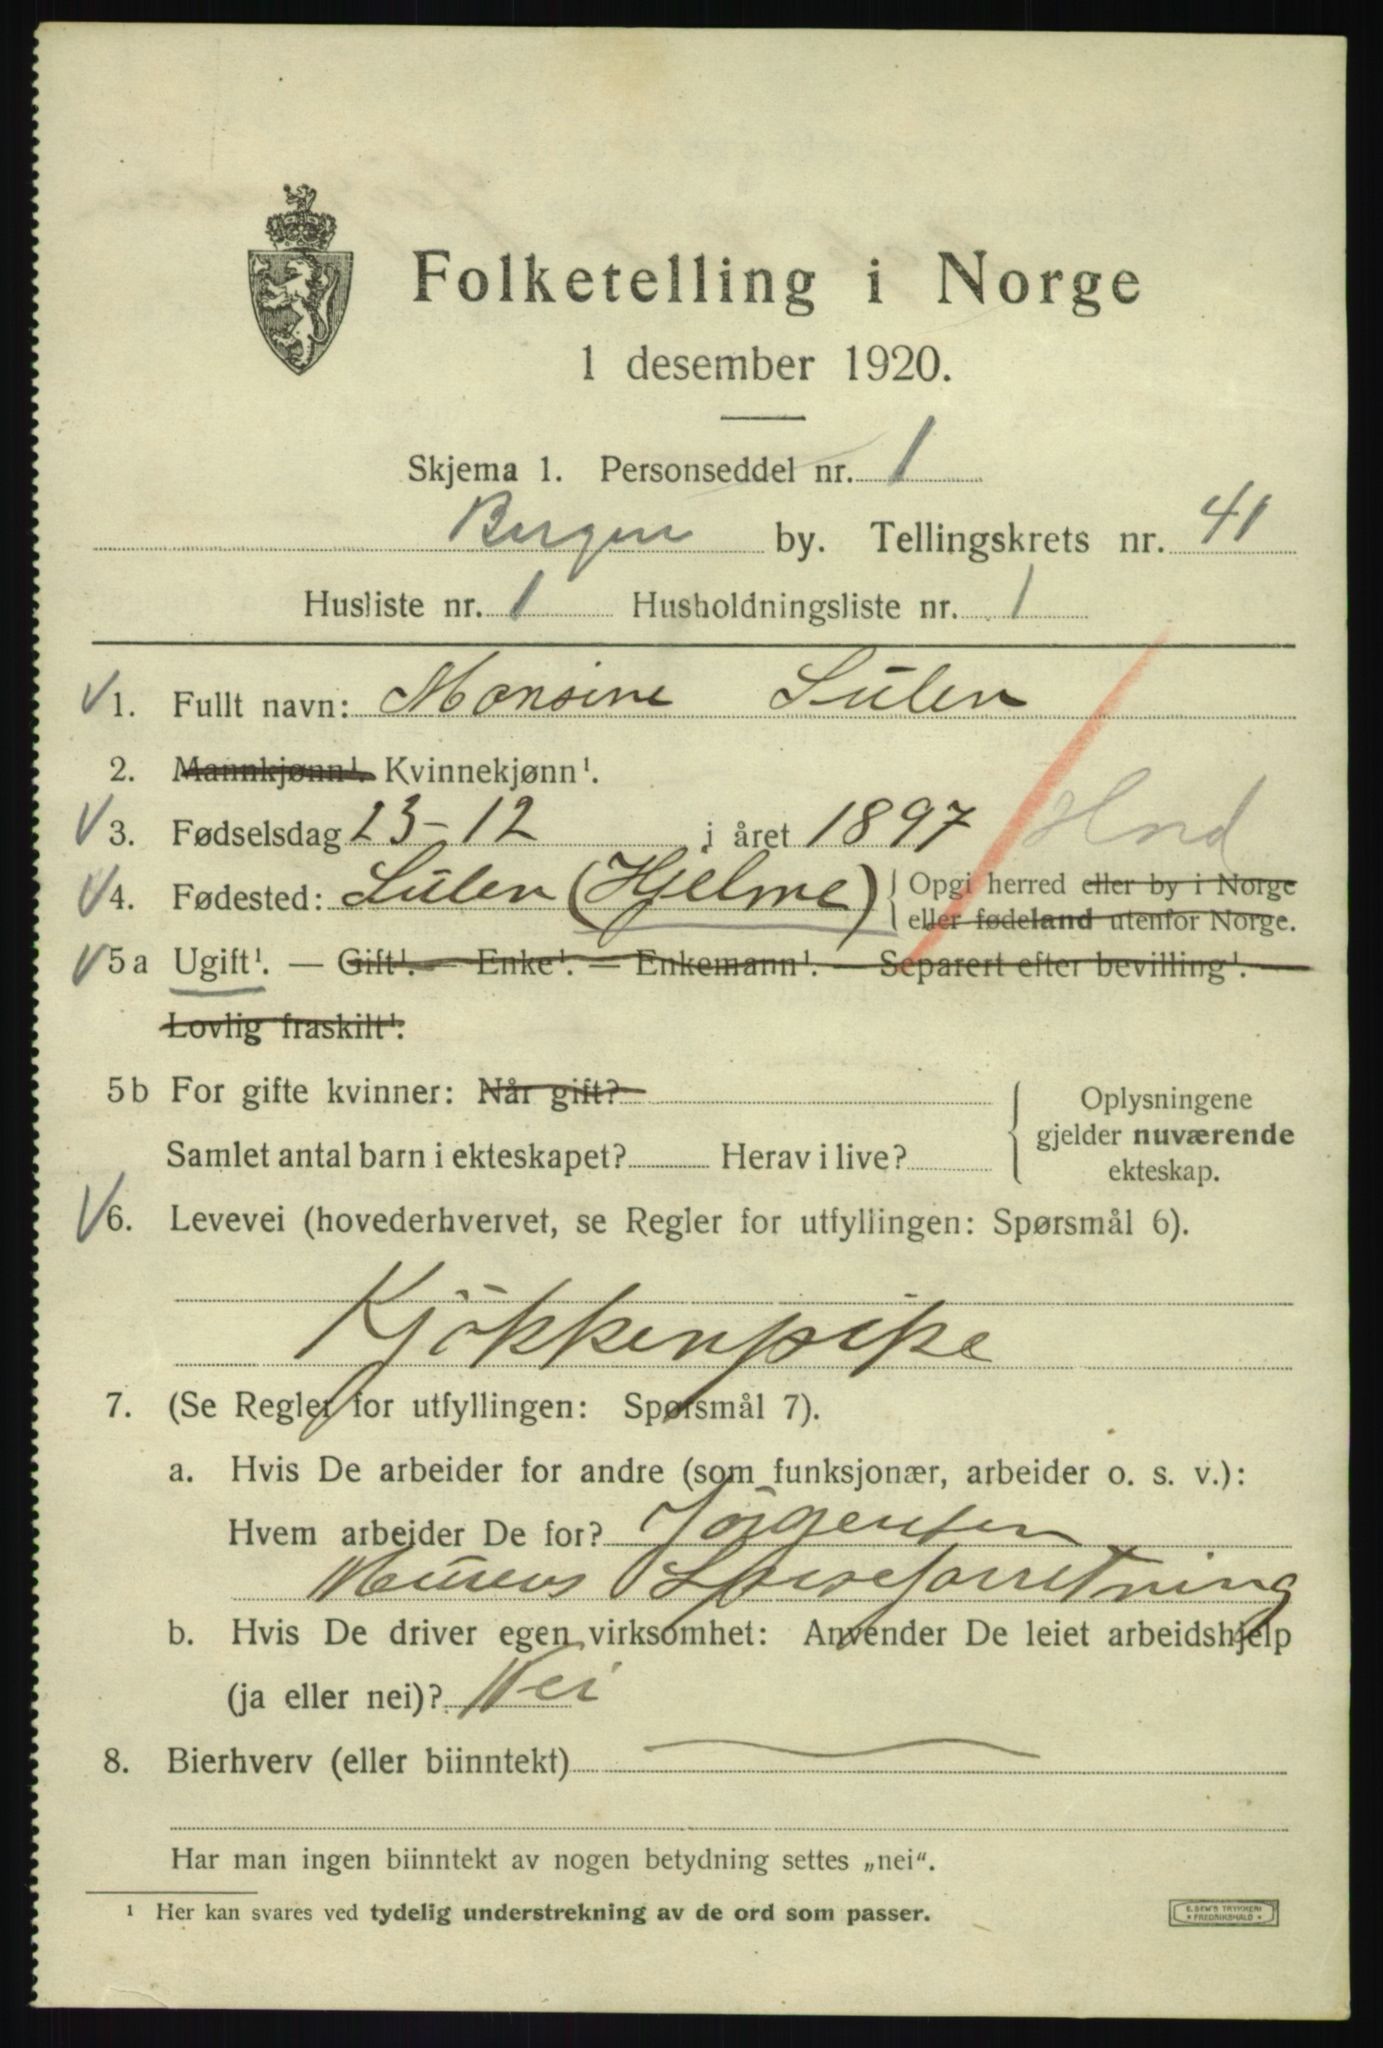 Folketelling i Norge
1 desember 1920.
Skjema 1. Personseddel nr. 1
Bergen by. Tellingskrets nr. 41
Husliste nr. 1 Husholdningsliste nr. 1
V 1. Fullt navn: Monsine Sulen
2. Mannkjønn¹. Kvinnekjønn¹.
V 3. Fødselsdag 23-12 i året 1897 Hnd
V 4. Fødested: Sulen (Hjelme) Opgi herred eller by i Norge
eller fødeland utenfor Norge.
V 5a Ugift¹. — Gift¹. — Enke¹. — Enkemann¹. — Separert efter bevilling¹. —
Lovlig fraskilt¹.
5b For gifte kvinner: Når gift?
Samlet antal barn i ekteskapet? Herav i live?
Oplysningene
gjelder nuværende
ekteskap.
V 6. Levevei (hovederhvervet, se Regler for utfyllingen: Spørsmål 6).
Kjökkenpike
7. (Se Regler for utfyllingen: Spørsmål 7).
a. Hvis De arbeider for andre (som funksjonær, arbeider o. s. v.):
Hvem arbeider De for? Jörgensen
Spiseforretning
b. Hvis De driver egen virksomhet: Anvender De leiet arbeidshjelp
(ja eller nei)? Nei
8. Bierhverv (eller biinntekt)
Har man ingen biinntekt av nogen betydning settes „nei".
¹ Her kan svares ved tydelig understrekning av de ord som passer.
E. SEM'S TRYKKERI
* FREDRIKSHALD *